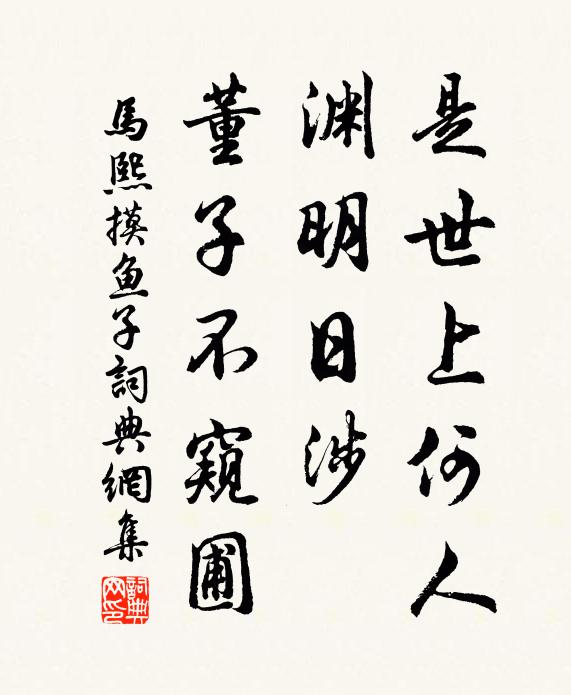 是世上何人
渊明日涉
董子不窺圃
馬熙摸鱼子詞典網集
詞典网印